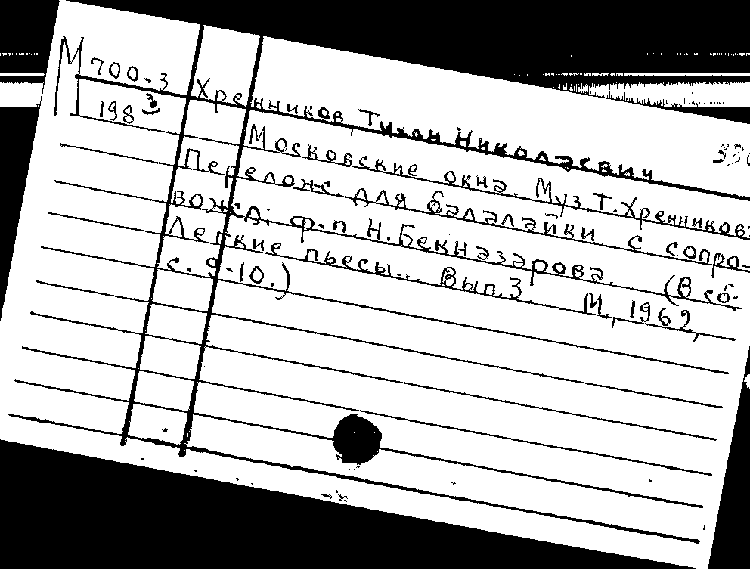 М 700-3
198 3
Хренников, Тихон Николаевич
Московские окна. Муз. Т. Хренникова
Перелож. для балалайки с сопро-
вожд. ф.-п. Н. Бекназарова. (В сб.
Легкие пьесы... Вып. 3. М., 1962,
с. 9-10.)